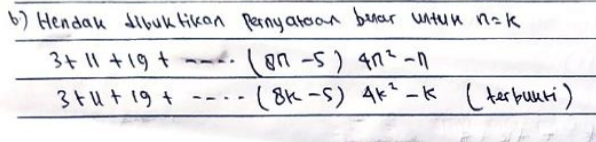 b) Hendak dibuktikan Pernyataan benar untuk n = k
3 + 11 + 19 + ----- (8n - 5) 4n² - n
3 + 11 + 19 + ----- (8k - 5) 4k² - k (terbukti)